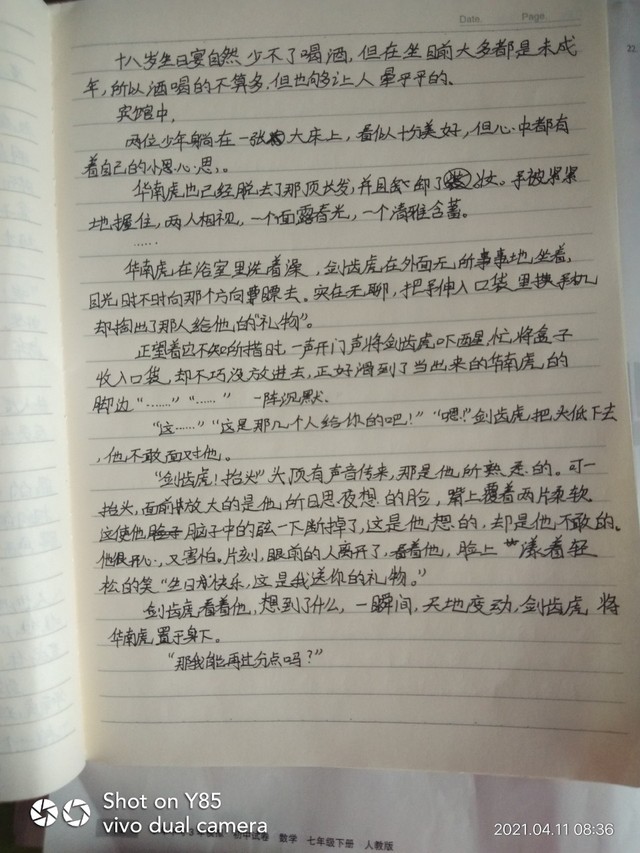 Date. Page.
22
十八岁生日宴自然少不了喝酒，但在坐目前大多都是未成
年，所以酒喝的不算多，但也够让人晕乎乎的、
宾馆中，
两位少年躺在一张大床上，看似十分美好，但心中都有
着自己的小思心思，。
华南虎也已经脱去了那顶长发，并且卸了妆。手被累累
地握住，两人相视，一个面露春光，一个清雅含蓄。
......
华南虎在浴室里洗着澡，剑齿虎在外面无所事事地坐着，
目光时不时向那个方向瞟去。实在无聊，把手伸入口袋里摸手机
却掏出了那人给他的“礼物”。
正望着它不知所措时，一声开门声将剑齿虎吓两星，忙将盒子
收入口袋，却不巧没放进去，正好滑到了当出来的华南虎的
脚边“......”“......” 一阵沉默、
“这......”“这是那几个人给你的吧！”“嗯！”剑齿虎把头低下去
，他不敢面对他。
“剑齿虎！抬头”头顶有声音传来，那是他所熟悉的。可一
抬头，面前放大的是他所日思夜想的脸，紧上覆着两片柔软
这使他脑子中的弦一下断掉了，这是他想的，却是他不敢的。
他很开心，又害怕。片刻，眼前的人离开了，看着他，脸上漾着轻
松的笑“生日快乐，这是我送你的礼物。”
剑齿虎看着他，想到了什么，一瞬间，天地变动，剑齿虎将
华南虎置于身下。
“那我能再过分点吗？”
Shot on Y85
vivo dual camera
初中试卷 数学 七年级下册 人教版
2021.04.11 08:36